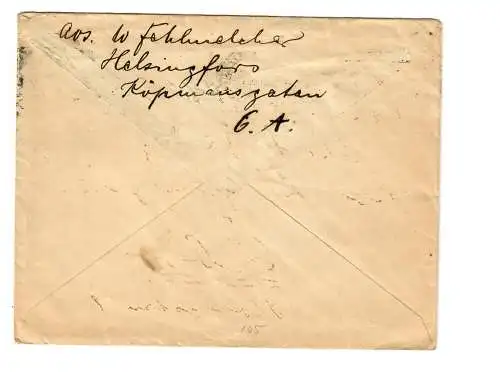 Avs. W Fehlmelcher
Helsingfors
Köpmansgatan
6. A.
105